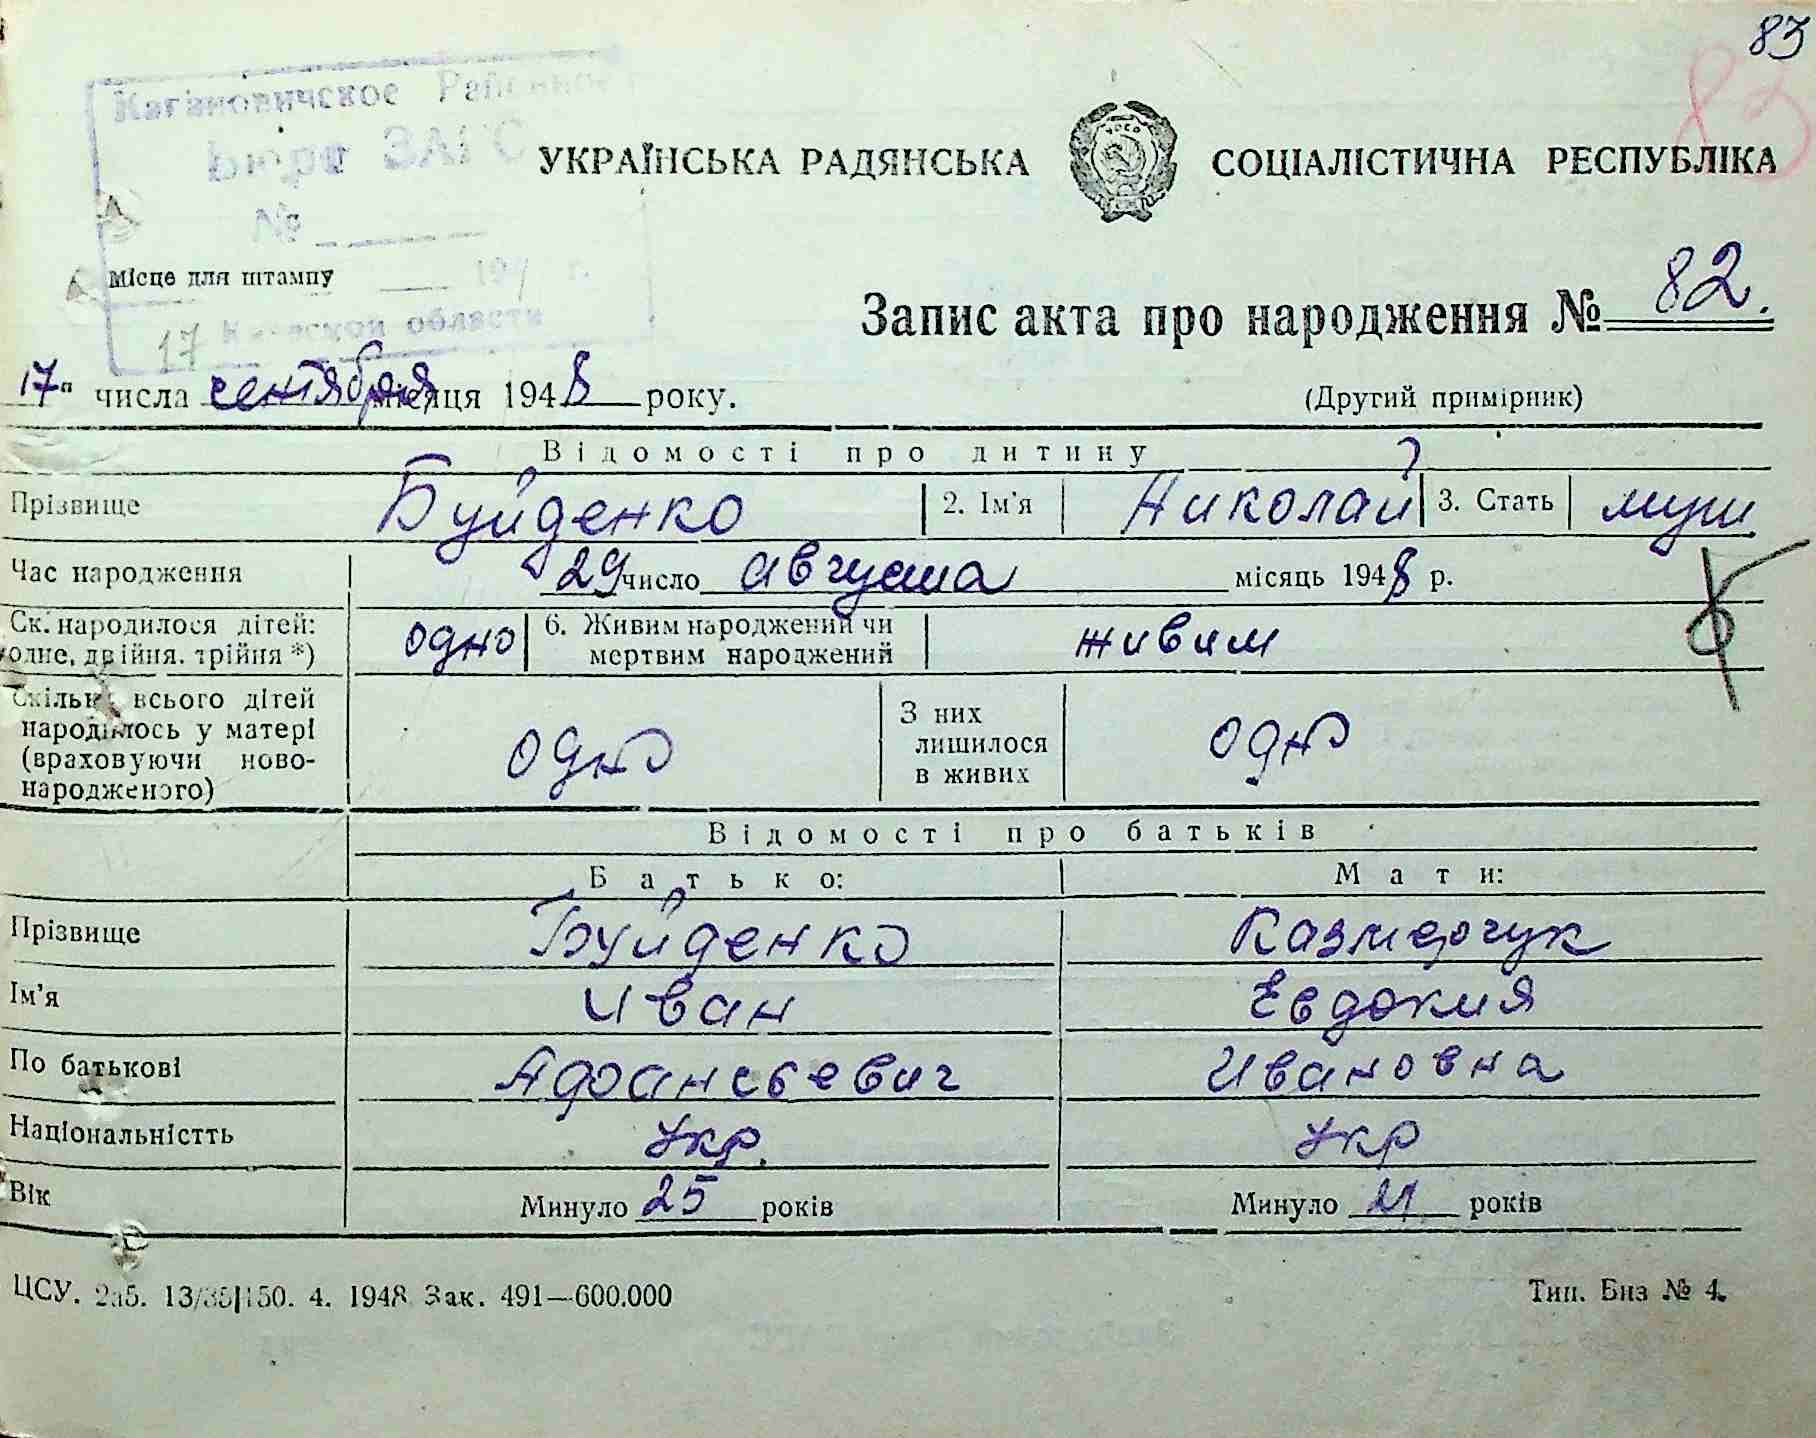 83
83
Кагановичское Районное
Бюро ЗАГС
№
УКРАЇНСЬКА РАДЯНСЬКА СОЦІАЛІСТИЧНА РЕСПУБЛІКА
Місце для штампу 194 г.
Запис акта про народження № 82.
17 Киевской области
17" числа сентября місяця 1948 року.
(Другий примірник)
Відомості про дитину
Прізвище Буйденко 2. Ім'я Николай 3. Стать муж
Час народження 29 число августа місяць 1948 р.
Ск. народилося дітей: одно 6. Живим народжений чи живим
одне, двійня, трійня *) мертвим народжений
Скільки всього дітей
народилось у матері
(враховуючи ново-
народженого) одно
З них
лишилося
в живих одно
Відомості про батьків
Батько: Мати:
Прізвище Буйденко Казмерчук
Ім'я Иван Евдокия
По батькові Афансьевич Ивановна
Національністть укр. укр
Вік Минуло 25 років Минуло 21 років
ЦСУ. 2а5. 13/35|150. 4. 1948 Зак. 491—600.000
Тип. Биз № 4.